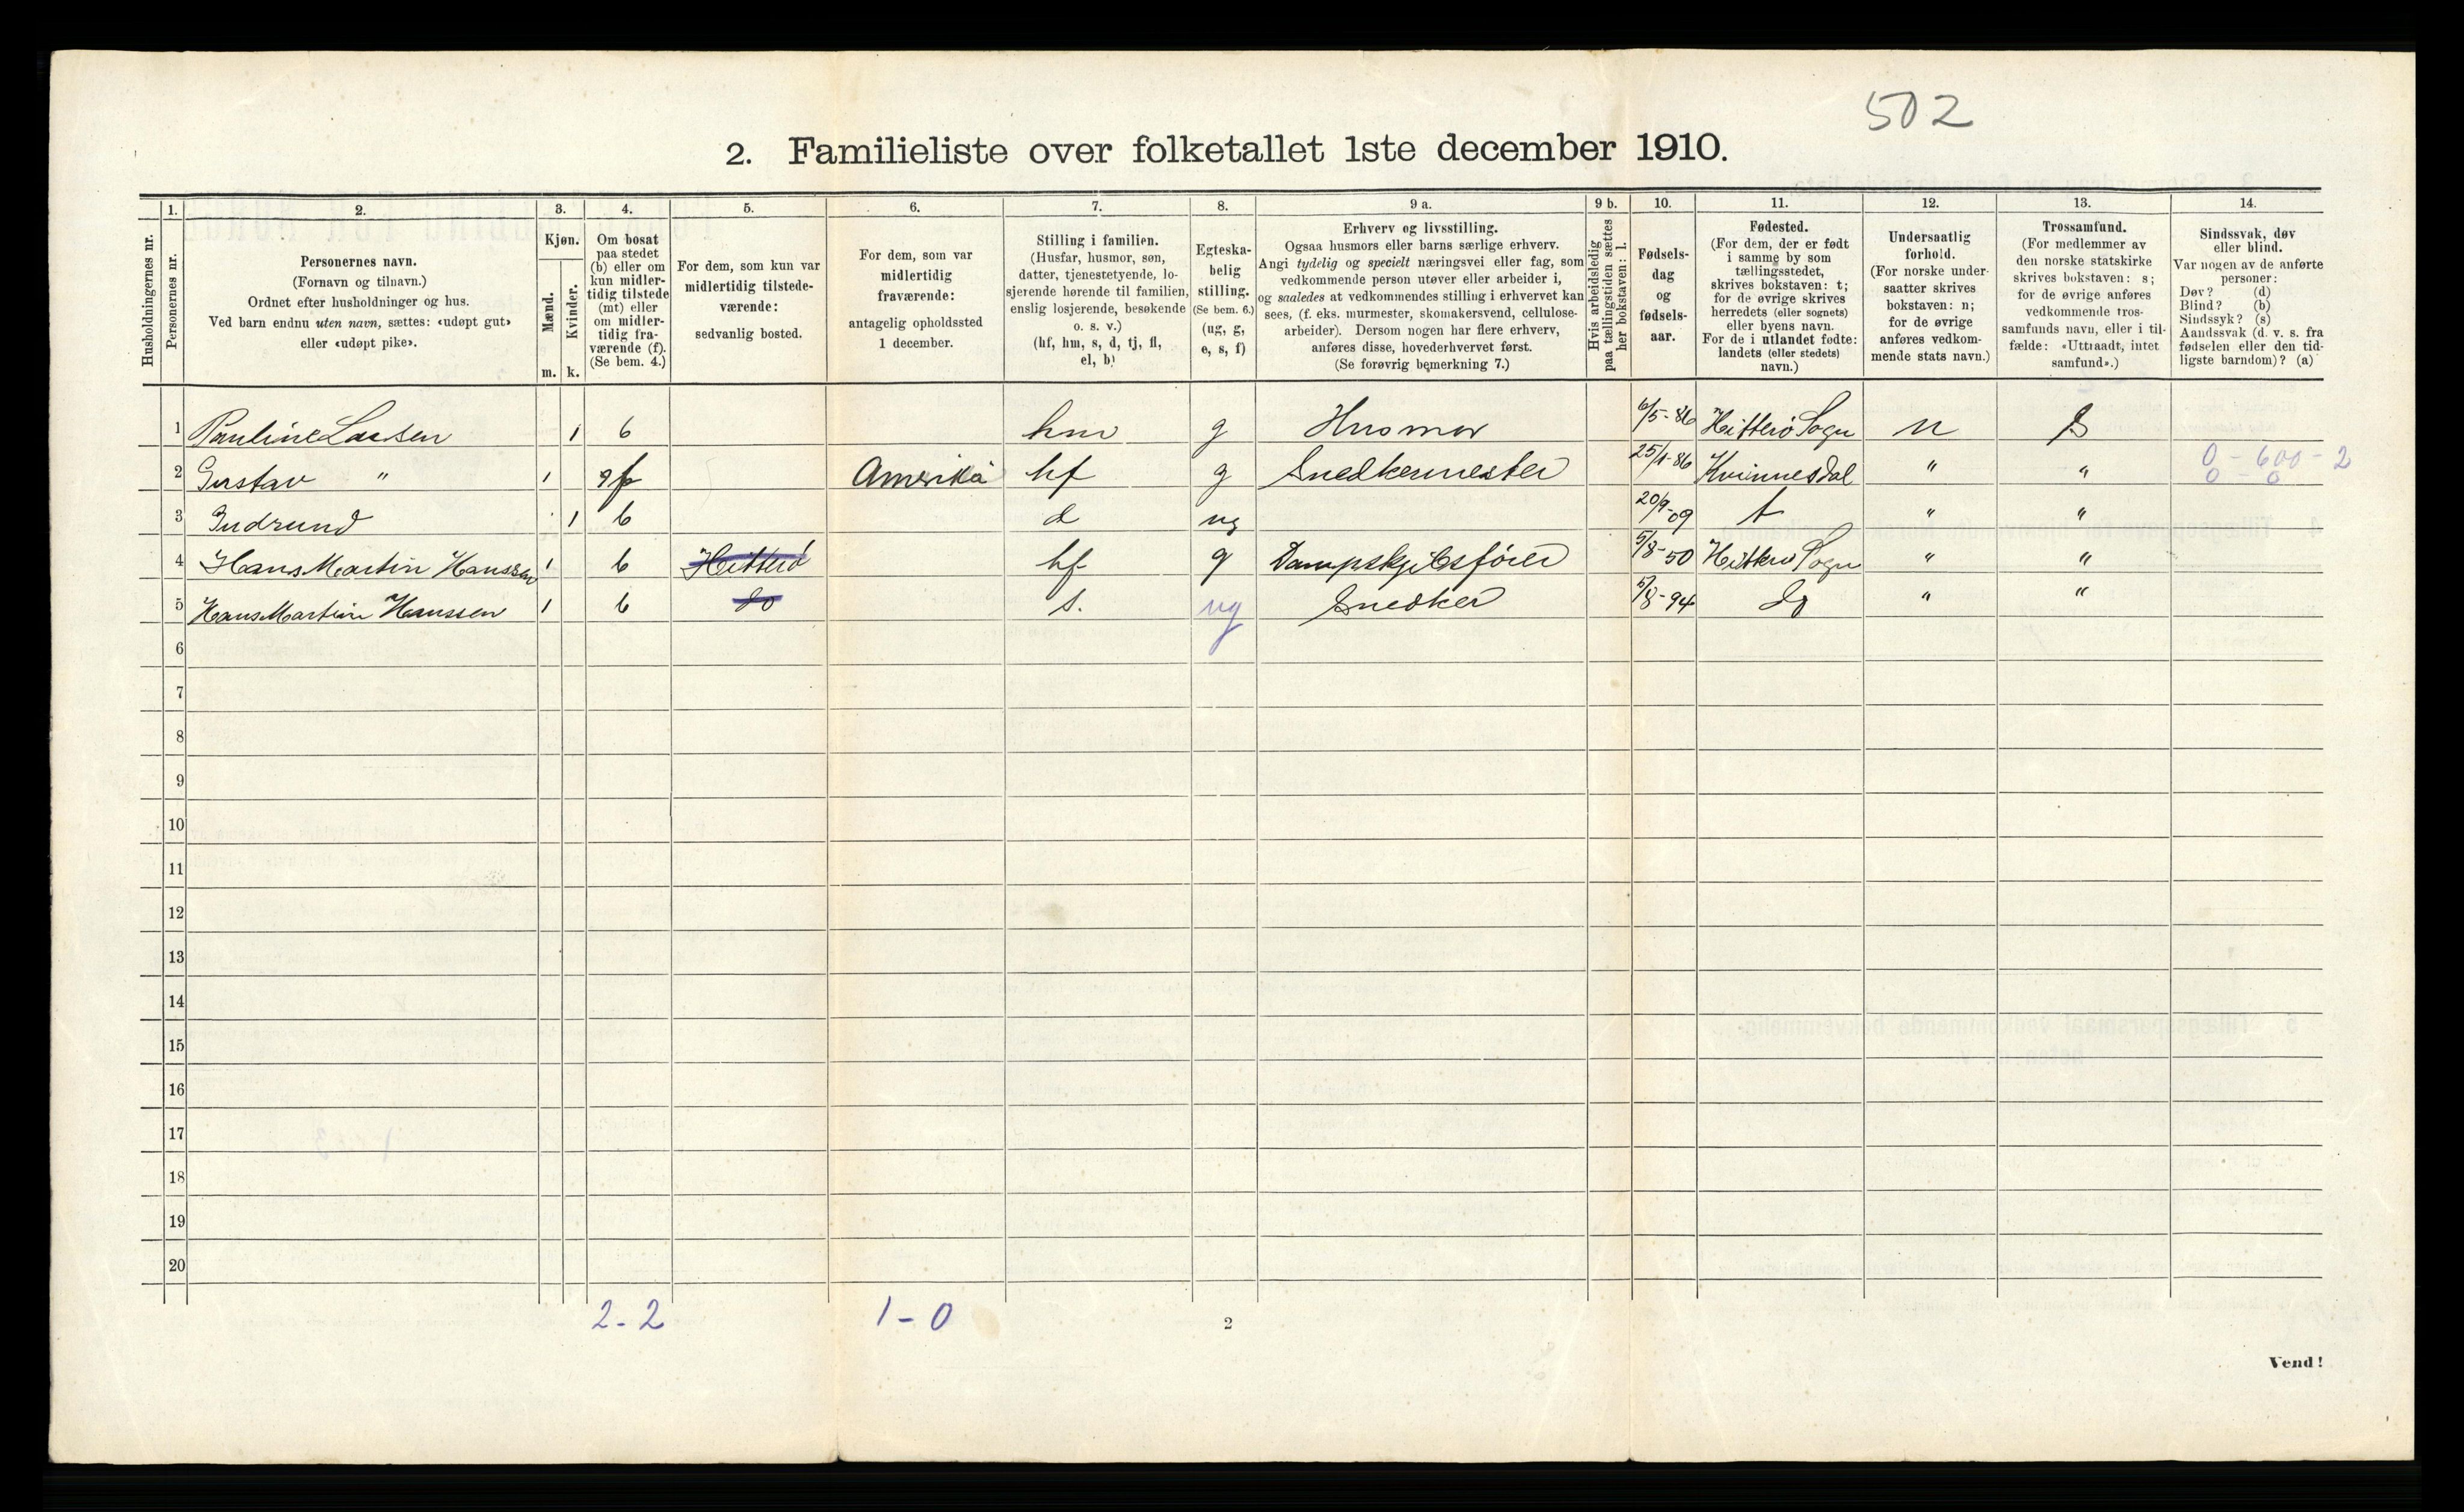 502
2. Familieliste over folketallet 1ste december 1910.
1. 2. 3. 4. 5. 6. 7. 8. 9 a. 9 b. 10. 11. 12. 13. 14.
Husholdningernes nr.
Personernes nr.
Personernes navn.
(Fornavn og tilnavn.)
Ordnet efter husholdninger og hus.
Ved barn endnu uten navn, sættes: «udøpt gut»
eller «udøpt pike».
Kjøn.
Mænd.
Kvinder.
m. k.
Om bosat
paa stedet
(b) eller om
kun midler-
tidig tilstede
(mt) eller
om midler-
tidig fra-
værende (f).
(Se bem. 4.)
For dem, som kun var
midlertidig tilstede-
værende:
sedvanlig bosted.
For dem, som var
midlertidig
fraværende:
antagelig opholdssted
1 december.
Stilling i familien.
(Husfar, husmor, søn,
datter, tjenestetyende, lo-
sjerende hørende til familien,
enslig losjerende, besøkende
o. s. v.)
(hf, hm, s, d, tj, fl,
el, b)
Egteska-
belig
stilling.
(Se bem. 6.)
(ug, g,
e, s, f)
Erhverv og livsstilling.
Ogsaa husmors eller barns særlige erhverv.
Angi tydelig og specielt næringsvei eller fag, som
vedkommende person utøver eller arbeider i,
og saaledes at vedkommendes stilling i erhvervet kan
sees, (f. eks. murmester, skomakersvend, cellulose-
arbeider). Dersom nogen har flere erhverv,
anføres disse, hovederhvervet først.
(Se forøvrig bemerkning 7.)
Hvis arbeidsledig
paa tællingstiden sættes
her bokstaven: l.
Fødsels-
dag
og
fødsels-
aar.
Fødested.
(For dem, der er født
i samme by som
tællingsstedet,
skrives bokstaven: t;
for de øvrige skrives
herredets (eller sognets)
eller byens navn.
For de i utlandet fødte:
landets (eller stedets)
navn.)
Undersaatlig
forhold.
(For norske under-
saatter skrives
bokstaven: n;
for de øvrige
anføres vedkom-
mende stats navn.)
Trossamfund.
(For medlemmer av
den norske statskirke
skrives bokstaven: s;
for de øvrige anføres
vedkommende tros-
samfunds navn, eller i til-
fælde: «Uttraadt, intet
samfund».)
Sindssvak, døv
eller blind.
Var nogen av de anførte
personer:
Døv? (d)
Blind? (b)
Sindssyk? (s)
Aandssvak (d. v. s. fra
fødselen eller den tid-
ligste barndom)? (a)
1 Pauline Larsen 1 b hm g Husmor 6/5-86 Hitterø Sogn n S
2 Gustav " 1 f Amerika hf g Snedkermester 25/1-86 Kvinnesdal " " 0 - 600 - 2
0 0
3 Gudrund 1 b d ug 20/9-09 t " "
4 Hans Martin Hanssen 1 b Hitterø hf g Dampskjibsfører 5/8-50 Hitterø Sogn " "
5 Hans Martin Hanssen 1 b do s. ug Snedker 5/8-94 do " "
6
7
8
9
10
11
12
13
14
15
16
17
18
19
20
2-2 1-0 2
Vend!